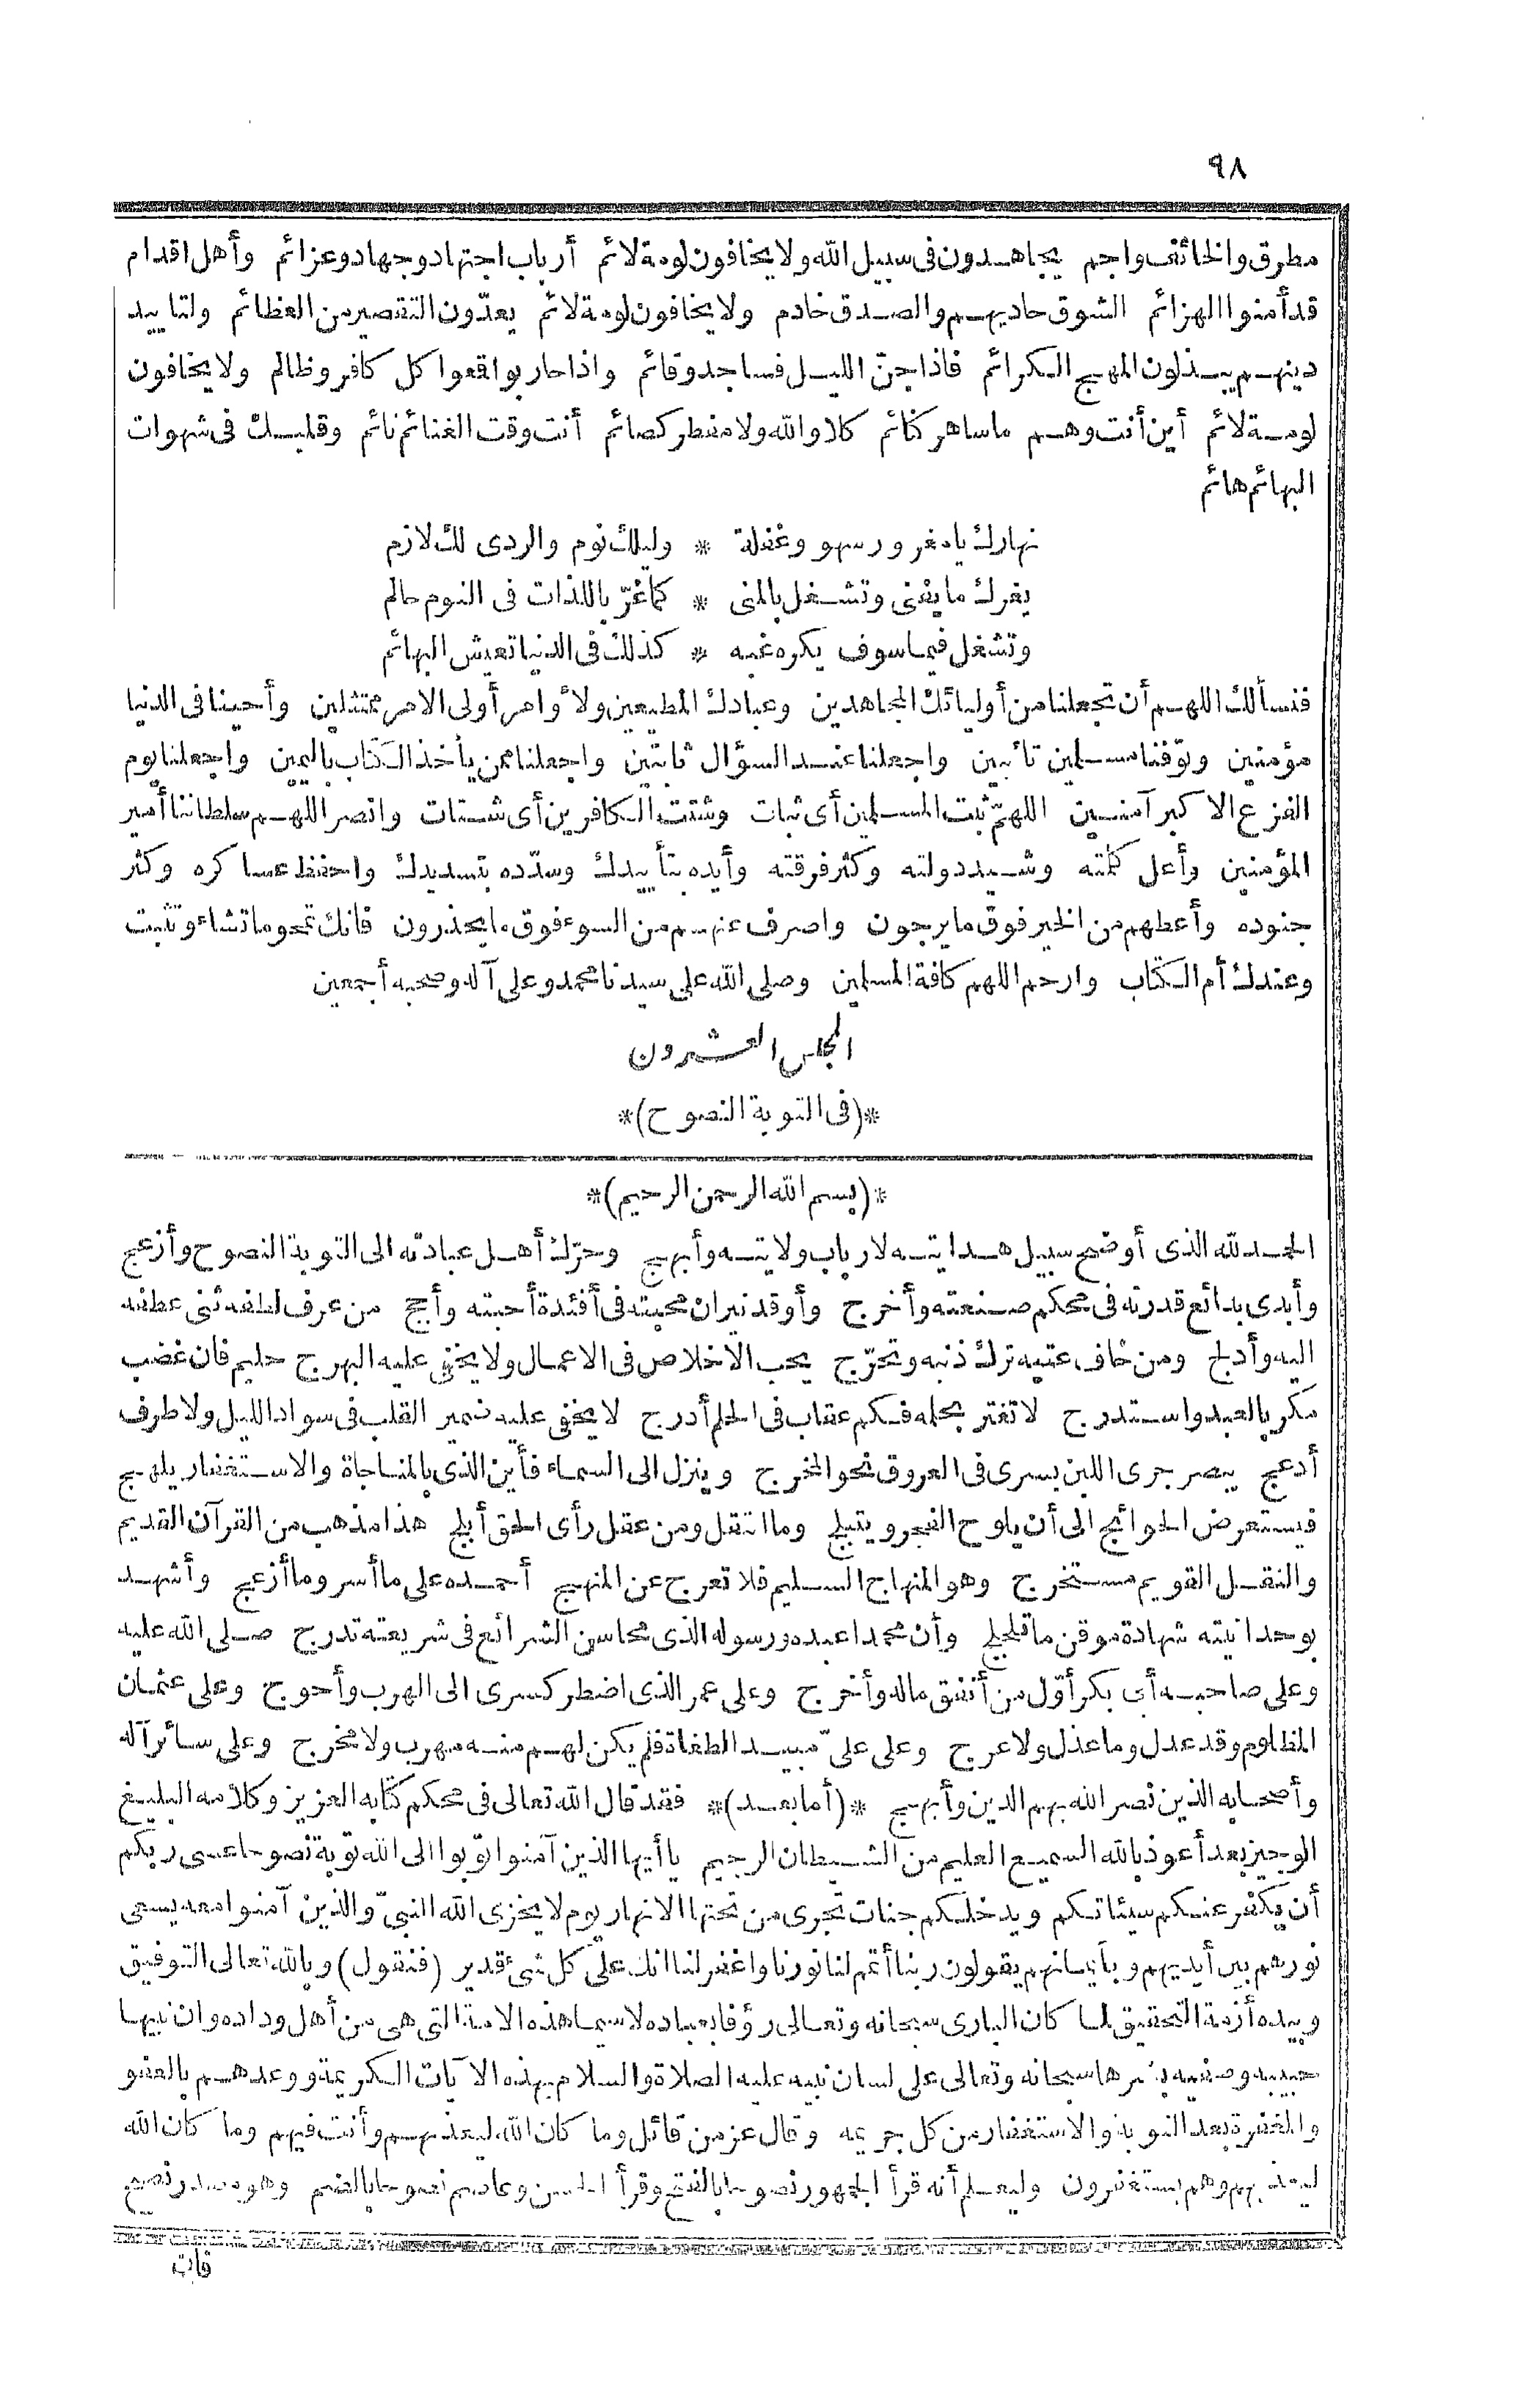 ٩٨
مطرق والخائف واجم يجاهدون فى سبيل الله ولا يخافون لومة لائم أرباب اجتهاد وجهاد وعزائم وأهل اقدام
قد أمنوا الهزائم الشوق حاديهم والصدق خادم ولا يخافون لومة لائم يعدّون التقصير من العظائم ولتاييد
دينهم يبذلون المهج الكرائم فاذا جنّ الليل فساجد وقائم واذا حاربوا قعوا كل كافر وظالم ولا يخافون
لومة لائم أين أنت وهم ما ساهر كنائم كلا والله ولا مفطر كصائم أنت وقت الغنائم نائم وقلبك فى شهوات
البهائم هائم
نهارك يا مغرور سهو وغفلة * وليلك نوم والردى لك لازم
يغرك ما يفنى وتشغل بالمنى * كما غرّ باللذات فى النوم حالم
وتشغل فيما سوف يكره غبه * كذلك فى الدنيا تعيش البهائم
فنسألك اللهم أن تجعلنا من أوليائك المجاهدين وعبادك المطيعين ولأوامر أولى الامر ممتثلين وأحينا فى الدنيا
مؤمنين وتوّفنا مسلمين تائبين واجعلنا عند السؤال ثابتين واجعلنا ممن يأخذ الكتاب باليمين واجعلنا يوم
الفزع الاكبر آمنين اللهمّ ثبت المسلمين أى ثبات وشتت الكافرين أى شتات وانصر اللهم سلطاننا أمير
المؤمنين وأعل كلمته وشيد دولته وكثر فرقته وأيده بتأييدك وسدّده بتسديدك واحفظ عساكره وكثر
جنوده وأعطهم من الخير فوق ما يرجون واصرف عنهم من السوء فوق ما يحذرون فانك تمحو ما تشاء وتثبت
وعندك أم الكتاب وارحم اللهم كافة المسلمين وصلى الله على سيدنا محمد وعلى آله وصحبه أجمعين
المجلس العشرون
*(فى التوبة النصوح)*
*(بسم الله الرحمن الرحيم)*
الحمد لله الذى أوضح سبيل هدايته لارباب ولايته وأبهج وحرّك أهل عبادته الى التوبة النصوح وأزعج
وأبدى بدائع قدرته فى محكم صنعته وأخرج وأوقد نيران محبته فى أفئدة أحبته وأجج من عرف لطفه ثنى عطفه
اليه وأدلج ومن خاف عتبه ترك ذنبه وتحرّج يحب الاخلاص فى الاعمال ولا يخفى عليه البهرج حليم فان غضب
مكر بالعبد واستدرج لا تغتر بحلمه فكم عقاب فى الحلم أدرج لا يخفى عليه ضمير القلب فى سواد الليل ولا طرف
أدعج يبصر جرى اللبن يسرى فى العروق نحو المخرج وينزل الى السماء فأين الذى بالمناجاة والاستغفار يلهج
فيستعرض الحوائج الى أن يلوح الفجر ويتبلج وما انتقل ومن عقل رأى الحق أبلج هذا مذهب من القرآن القديم
والنقل القويم مستخرج وهو المنهاج السليم فلا تعرج عن المنهج أحمده على ما أسر وما أزعج وأشهد
بوحدانيته شهادة موقن ما تلجلج وأن محمدا عبده ورسوله الذى محاسن الشرائع فى شريعته تدرج صلى الله عليه
وعلى صاحبه أبى بكر أوّل من أنفق ماله وأخرج وعلى عمر الذى اضطر كسرى الى الهرب وأحوج وعلى عثمان
المظلوم وقد عدل وما عذل ولا عرج وعلى علىّ مبيد الطغاة فلم يكن لهم منه مهرب ولا مخرج وعلى سائر آله
وأصحابه الذين نصر الله بهم الدين وأبهج *(أما بعد)* فقد قال الله تعالى فى محكم كتابه العزيز وكلامه البليغ
الوجيز بعد أعوذ بالله السميع العليم من الشيطان الرجيم يا أيها الذين آمنوا توبوا الى الله توبة نصوحا عسى ربكم
أن يكفر عنكم سيئاتكم ويدخلكم جنات تجرى من تحتها الانهار يوم لا يخزى الله النبىّ والذين آمنوا معه يسعى
نورهم بين أيديهم وبأيمانهم يقولون ربنا أتمم لنا نورنا واغفر لنا انك على كل شئ قدير (فنقول) وبالله تعالى التوفيق
وبيده أزمة التحقيق لما كان البارى سبحانه وتعالى رؤفا بعباده لا سيما هذه الامة التى هى من أهل وداده وان نبيها
حبيبه وصفيه بشرها سبحانه وتعالى على لسان نبيه عليه الصلاة والسلام بهذه الآيات الكريمة ووعدهم بالعفو
والمغفرة بعد التوبة والاستغفار من كل جريمه وقال عز من قائل وما كان الله ليعذبهم وأنت فيهم وما كان الله
ليعذبهم وهم يستغفرون وليعلم أنه قرأ الجمهور نصوحا بالفتح وقرأ الحسن وعاصم نصوحا بالضم وهو مصدر نصح